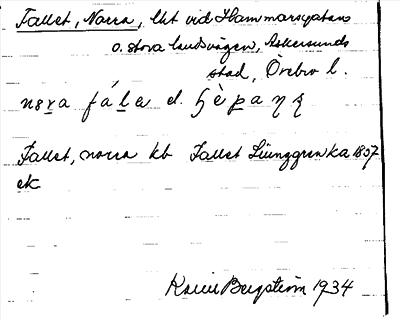 Fallet, Norra, lht vid Hammarsgatans
o. stora landsvägen, Askersunds
stad, Örebro l.
nɷra fála el.
Fallet, norra kb Fallet Ljunggren ka 1857
ek
Karin Bergström 1934